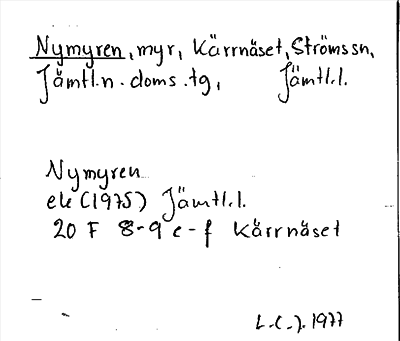 Nymyren, myr, Kärrnäset, Ströms sn,
Jämtl.n. doms.tg, Jämtl.l.
Nymyren
ek (1975) Jämtl.l.
20 F 8-9 e-f Kärrnäset
L.C-J. 1977